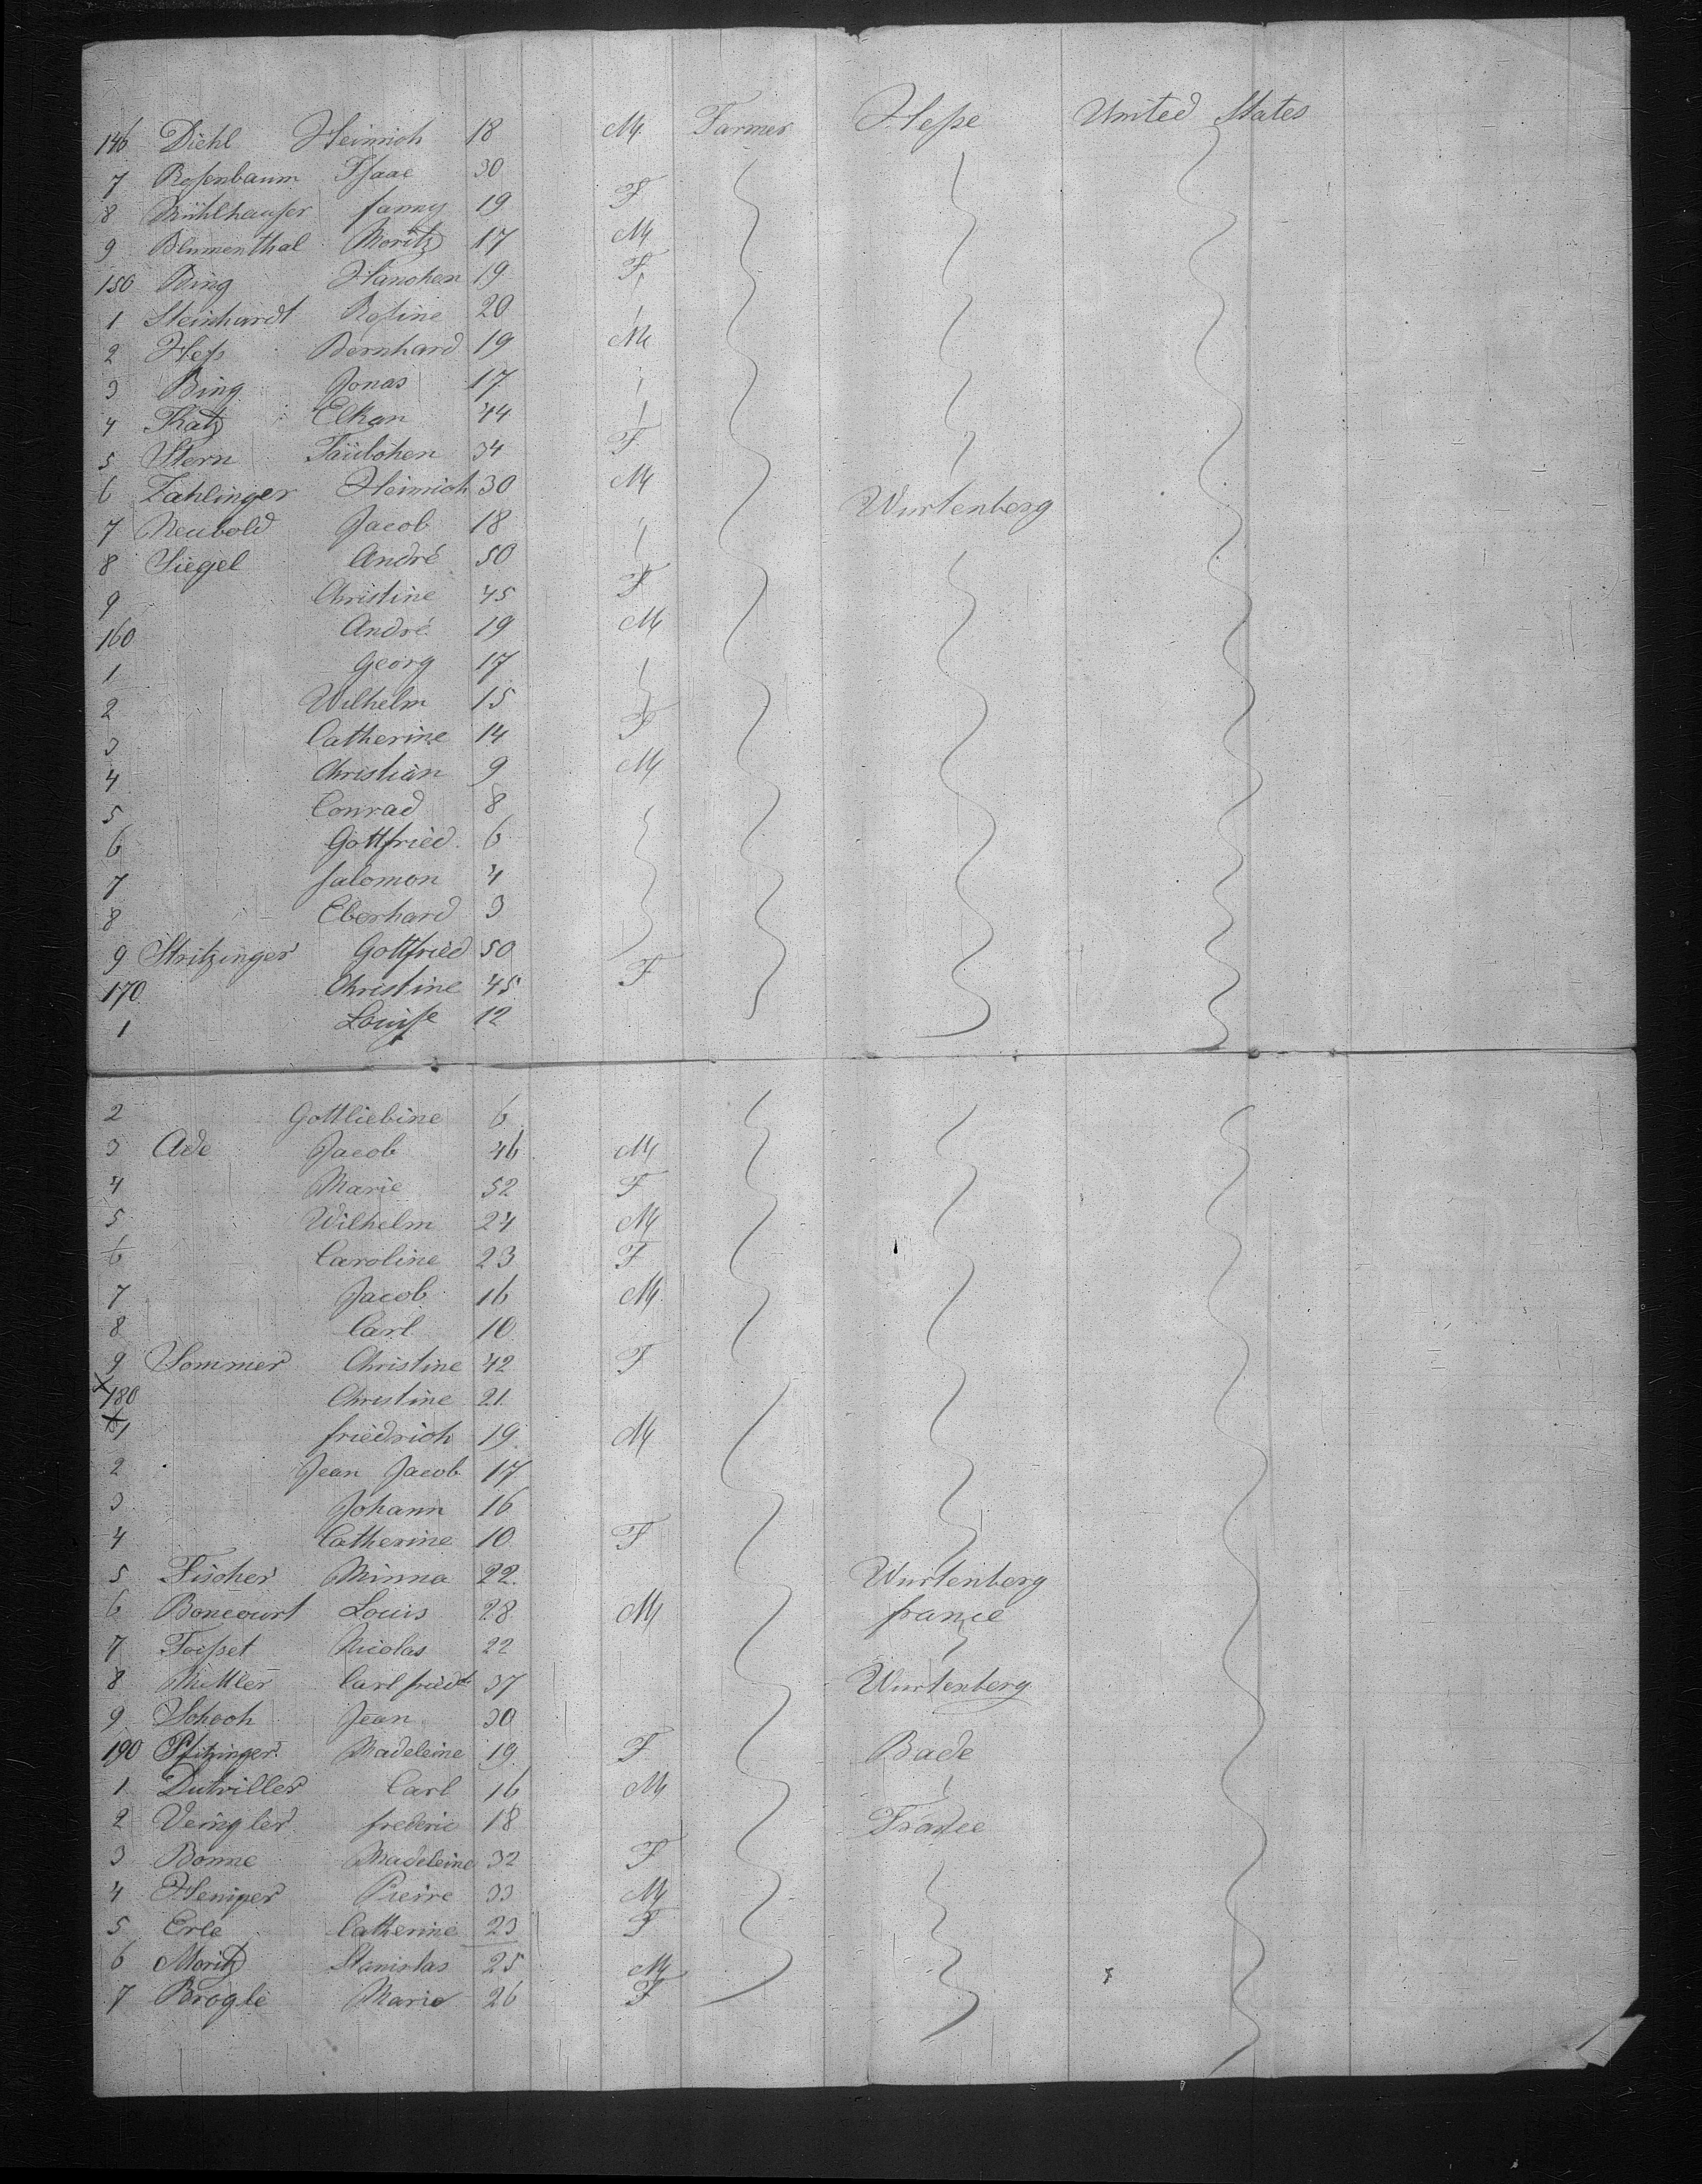 146 Diehl Heinrich 18 M Farmer Hesse United States
7 Rosenbaum Isaac 30
8 Mühlhauser fanny 19 F
9 Blumenthal Moritz 17 M
150 Bing Hanchen 19 F
1 Steinhardt Rosine 20
2 Hess Bernhard 19 M
3 Bing Jonas 17
4 Katz Elkan 44
5 Stern Täubchen 34 F
6 Zahlinger Heinrich 30 M Wurtenberg
7 Neubold Jacob 18
8 Siegel André 50
9 Christine 45 F
160 André 19 M
1 Georg 17
2 Wilhelm 15
3 Catherine 14 F
4 Christian 9 M
5 Conrad 8
6 Gottfried 6
7 Salomon 4
8 Eberhard 3
9 Stritzinger Gottfried 50
170 Christine 45 F
1 Louise 12
2 Gottliebine 6
3 Ade Jacob 46 M
4 Marie 52 F
5 Wilhelm 24 M
6 Caroline 23 F
7 Jacob 16 M
8 Carl 10
9 Sommer Christine 42 F
x 180 Christine 21
x 1 friedrich 19 M
2 Jean Jacob 17
3 Johann 16
4 Catherine 10 F
5 Fischer Minna 22 Wurtenberg
6 Boncourt Louis 28 M france
7 Toisset Nicolas 22
8 Carl friedr 37 Wurtenberg
9 Schoch Jean 30
190 Pfitzinger Madeleine 19 F Bade
1 Dutriller Carl 16 M
2 Veingler frederic 18 France
3 Bonne Madeleine 32 F
4 Hemper Pierre 33 M
5 Erle Catherine 23 F
6 Moritz Stanislas 25 M
7 Brogle Marie 26 F